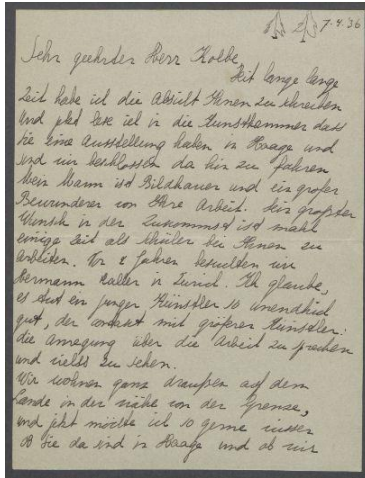 7.4.36
Sehr geehrter Herr Kolbe,
Seit lange lange
Zeit habe ich die Absicht Ihnen zu schreiben
und jetzt lese ich in die Kunstkammer dass
Sie eine Ausstellung haben in Haage und
sind wir beschlossen da hin zu fahren
Mein Mann ist Bildhauer und ein großer
Bewunderer von Ihre Arbeit. Sein größter
Wunsch in der Zukommst ist mahl
einige Zeit als Schüler bei Ihnen zu
arbeiten. Vor 2 Jahren besuchten wir
Hermann Haller in Zurich. Ich glaube,
es tut ein junger Künstler so unendlich
gut, der contakt mit größeren Künstler.
die Anregung über die Arbeit zu sprechen
und vieles zu sehen.
Wir wohnen ganz draußen auf dem
Lande in der nähe von der Grenze,
und jetzt möchte ich so gerne wissen
ob Sie da sind in Haage und ob wir